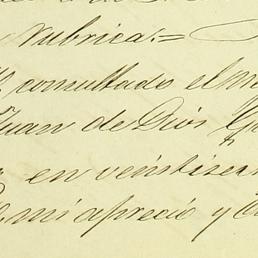 rubrica:=
consultado el
Juan de Dios
en veintise
mi aprecio y